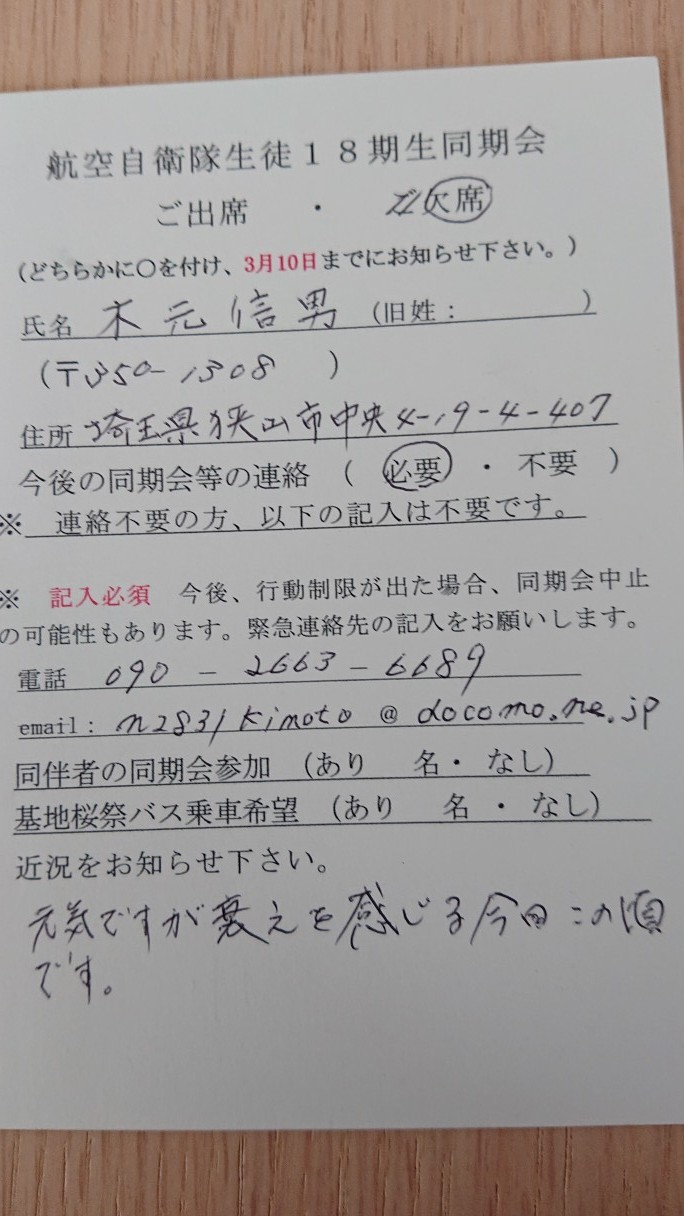 航空自衛隊生徒１８期生同期会
ご出席 ・ ご欠席
（どちらかに○を付け、3月10日までにお知らせ下さい。）
氏名 木元信男 （旧姓： ）
（〒350-1308 ）
住所 埼玉県狭山市中央4-19-4-407
今後の同期会等の連絡 （ 必要 ・ 不要 ）
※ 連絡不要の方、以下の記入は不要です。
※ 記入必須 今後、行動制限が出た場合、同期会中止
の可能性もあります。緊急連絡先の記入をお願いします。
電話 090 - 2663 - 6689
email： n2831kimoto@docomo.ne.jp
同伴者の同期会参加 （あり 名・ なし）
基地桜祭バス乗車希望 （あり 名 ・ なし）
近況をお知らせ下さい。
元気ですが衰えを感じる今日この頃
です。